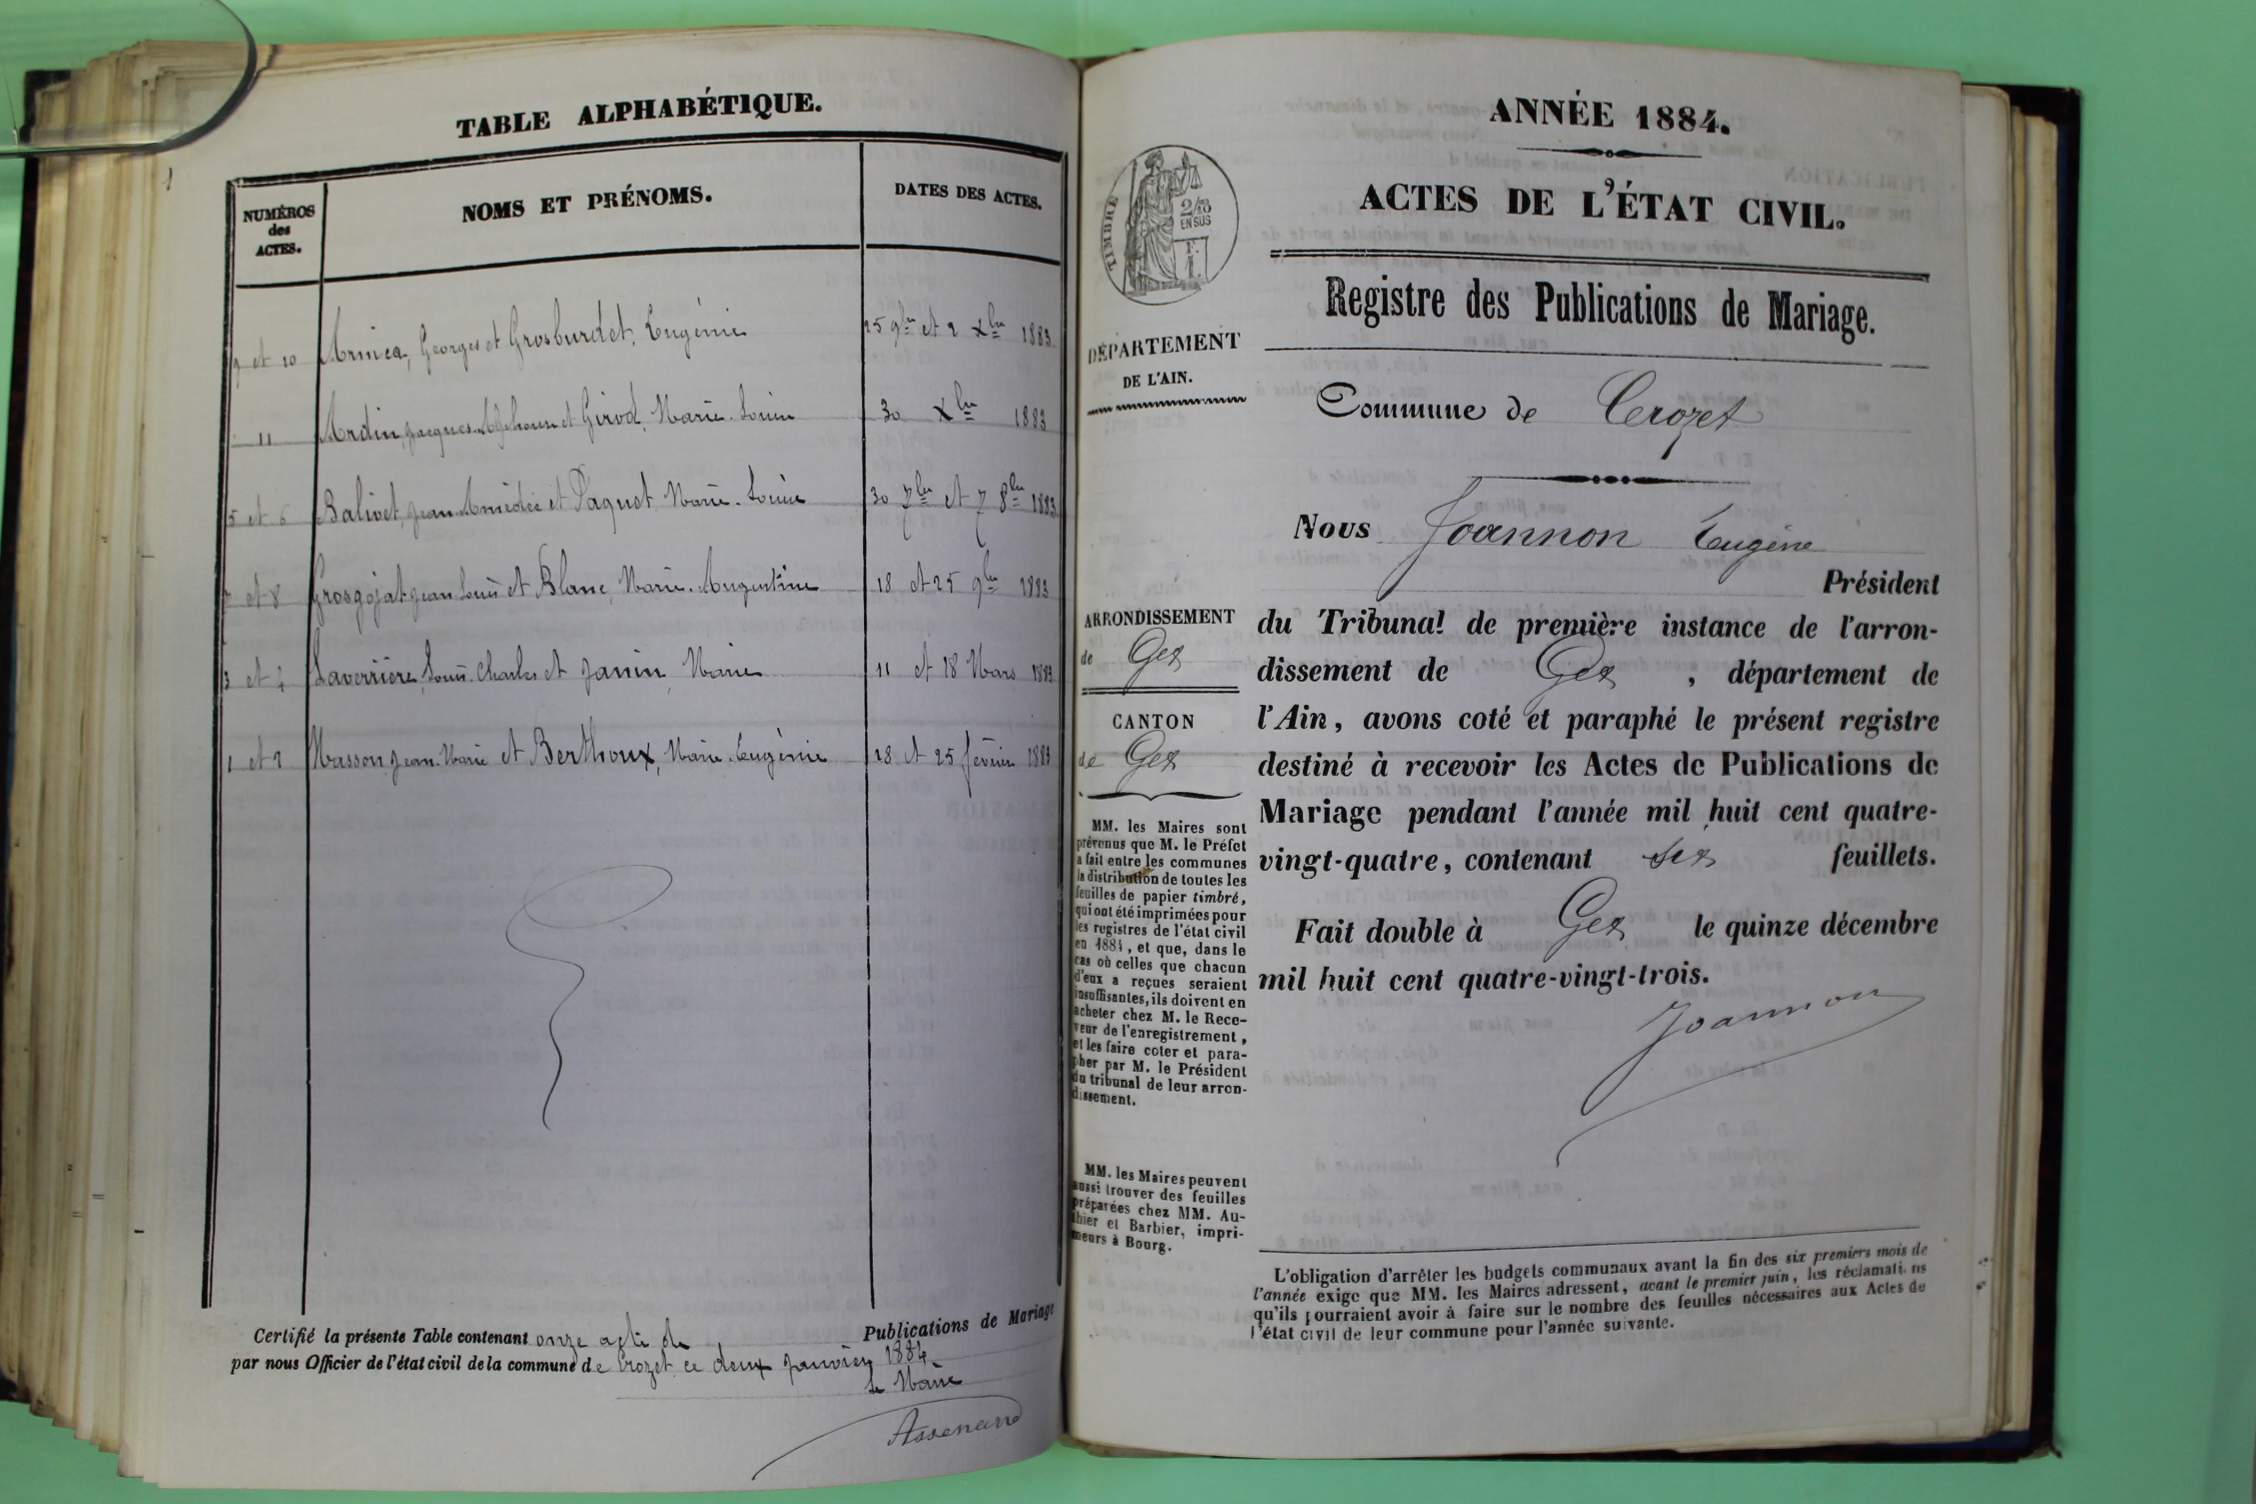 TABLE ALPHABÉTIQUE.
NUMÉROS
des
ACTES.
NOMS ET PRÉNOMS.
DATES DES ACTES.
9 et 10 Armica, Georges et Grosburdet, Eugénie 25 9bre et 2 Xbre 1883
11 Ardin, Jacques Alphonse et Girod, Marie-Louise 30 Xbre 1883
5 et 6 Balivet, Jean Amédée et Paquet Marie-Louise 30 7bre et 7 8bre 1883
7 et 8 Grosgojat Jean Louis et Blanc, Marie-Augustine 18 et 25 9bre 1883
3 et 4 Laverrière, Louis-Charles et Janin, Marie 11 et 18 Mars 1883
1 et 2 Masson, Jean-Marie et Berthoux, Marie-Eugénie 18 et 25 février 1883
Certifié la présente Table contenant onze acte de Publications de Mariage
par nous Officier de l'état civil de la commune de Crozet ce deux Janvier 1884
Le Maire
ANNÉE 1884.
ACTES DE L'ÉTAT CIVIL.
TIMBRE
2/10
EN SUS
Registre des Publications de Mariage.
DÉPARTEMENT
DE L'AIN.
Commune de Crozet
Nous Joannon Eugène
Président
du Tribunal de première instance de l'arron-
dissement de Gex, département de
l'Ain, avons coté et paraphé le présent registre
destiné à recevoir les Actes de Publications de
Mariage pendant l'année mil huit cent quatre-
vingt-quatre, contenant six feuillets.
Fait double à Gex le quinze décembre
mil huit cent quatre-vingt-trois.
Joannon
ARRONDISSEMENT
de Gex
CANTON
de Gex
MM. les Maires sont
prévenus que M. le Préfet
a fait entre les communes
la distribution de toutes les
feuilles de papier timbré,
qui ont été imprimées pour
les registres de l'état civil
en 1884, et que, dans le
cas où celles que chacun
d'eux a reçues seraient
insuffisantes, ils doivent en
acheter chez M. le Rece-
veur de l'enregistrement,
et les faire coter et para-
pher par M. le Président
du tribunal de leur arron-
dissement.
MM. les Maires peuvent
aussi trouver des feuilles
préparées chez MM. Au-
thier et Barbier, impri-
meurs à Bourg.
L'obligation d'arrêter les budgets communaux avant la fin des six premiers mois de
l'année exige que MM. les Maires adressent, avant le premier juin, les réclamations
qu'ils pourraient avoir à faire sur le nombre des feuilles nécessaires aux Actes de
l'état civil de leur commune pour l'année suivante.